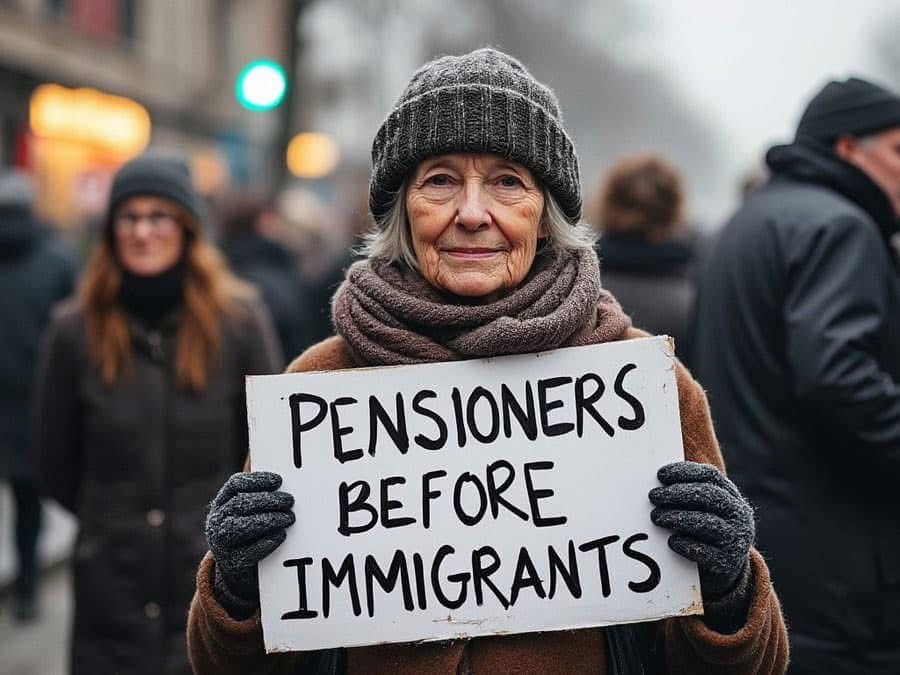 PENSIONERS
BEFORE
IMMIGRANTS